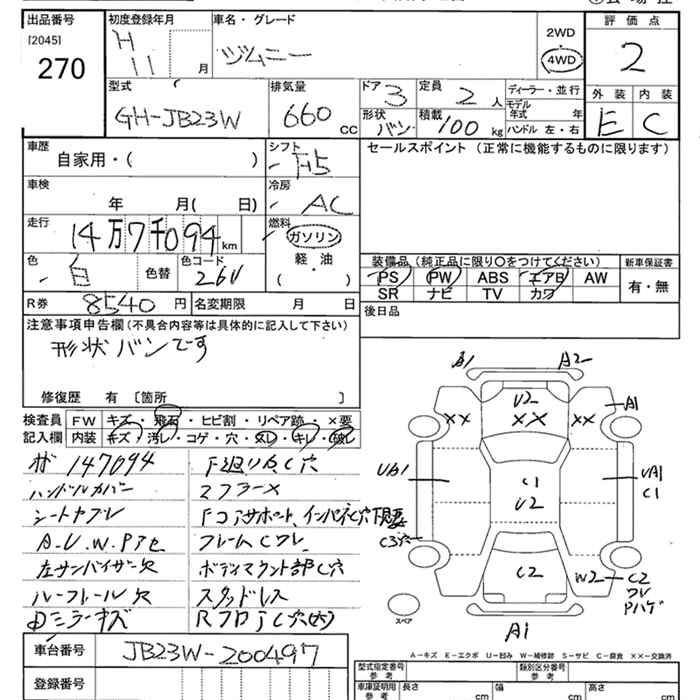 出品番号
[2045]
270
初度登録年月
H 11 月
車名・グレード
ジムニー
2WD
4WD
評価点
2
外装 内装
E C
型式
GH-JB23W
排気量
660 cc
ドア 3
定員 2 人
形状 バン
積載 100 kg
ディーラー・並行
モデル年式 年
ハンドル 左・右
車歴
自家用・( )
シフト
F5
セールスポイント (正常に機能するものに限ります)
車検
年 月( 日)
冷房
AC
走行
14万7千094 km
燃料
ガソリン
軽油
( ・ )
色
白
色替
色コード
26U
装備品 (純正品に限り〇をつけてください)
PS PW ABS エアB AW
SR ナビ TV カワ
新車保証書
有・無
R券 8540 円
名変期限 月 日
後日品
注意事項申告欄 (不具合内容等は具体的に記入して下さい)
形状バンです
修復歴 有 〔箇所 〕
検査員
記入欄
FW キズ・飛石・ヒビ割・リペア跡・×要
内装 キズ・汚レ・コゲ・穴・スレ・キレ・破レ
147094
ハンドルカバー
シートヤブレ
A.U.W.Pアセ
左サンバイザー欠
ルーフレール欠
ミラーキズ
F廻り C穴
マフラー×
Fコアサポート、インパネC穴
フレームCワレ
ボディマウント部C穴
スタッドレス
Rフロア C穴(大)
A1 A2
U2
×× ×× ××
A1
UA1
C1
U2
UA1
C1
C3穴
C2
W2
C2
ワレ
Pハゲ
スペア
A1
A-キズ E-エクボ U-凹み W-補修跡 S-サビ C-腐食 ××-交換済
車台番号
JB23W-200497
登録番号
型式指定番号
参考
類別区分番号
参考
車庫証明用
参考
長さ cm
幅 cm
高さ cm